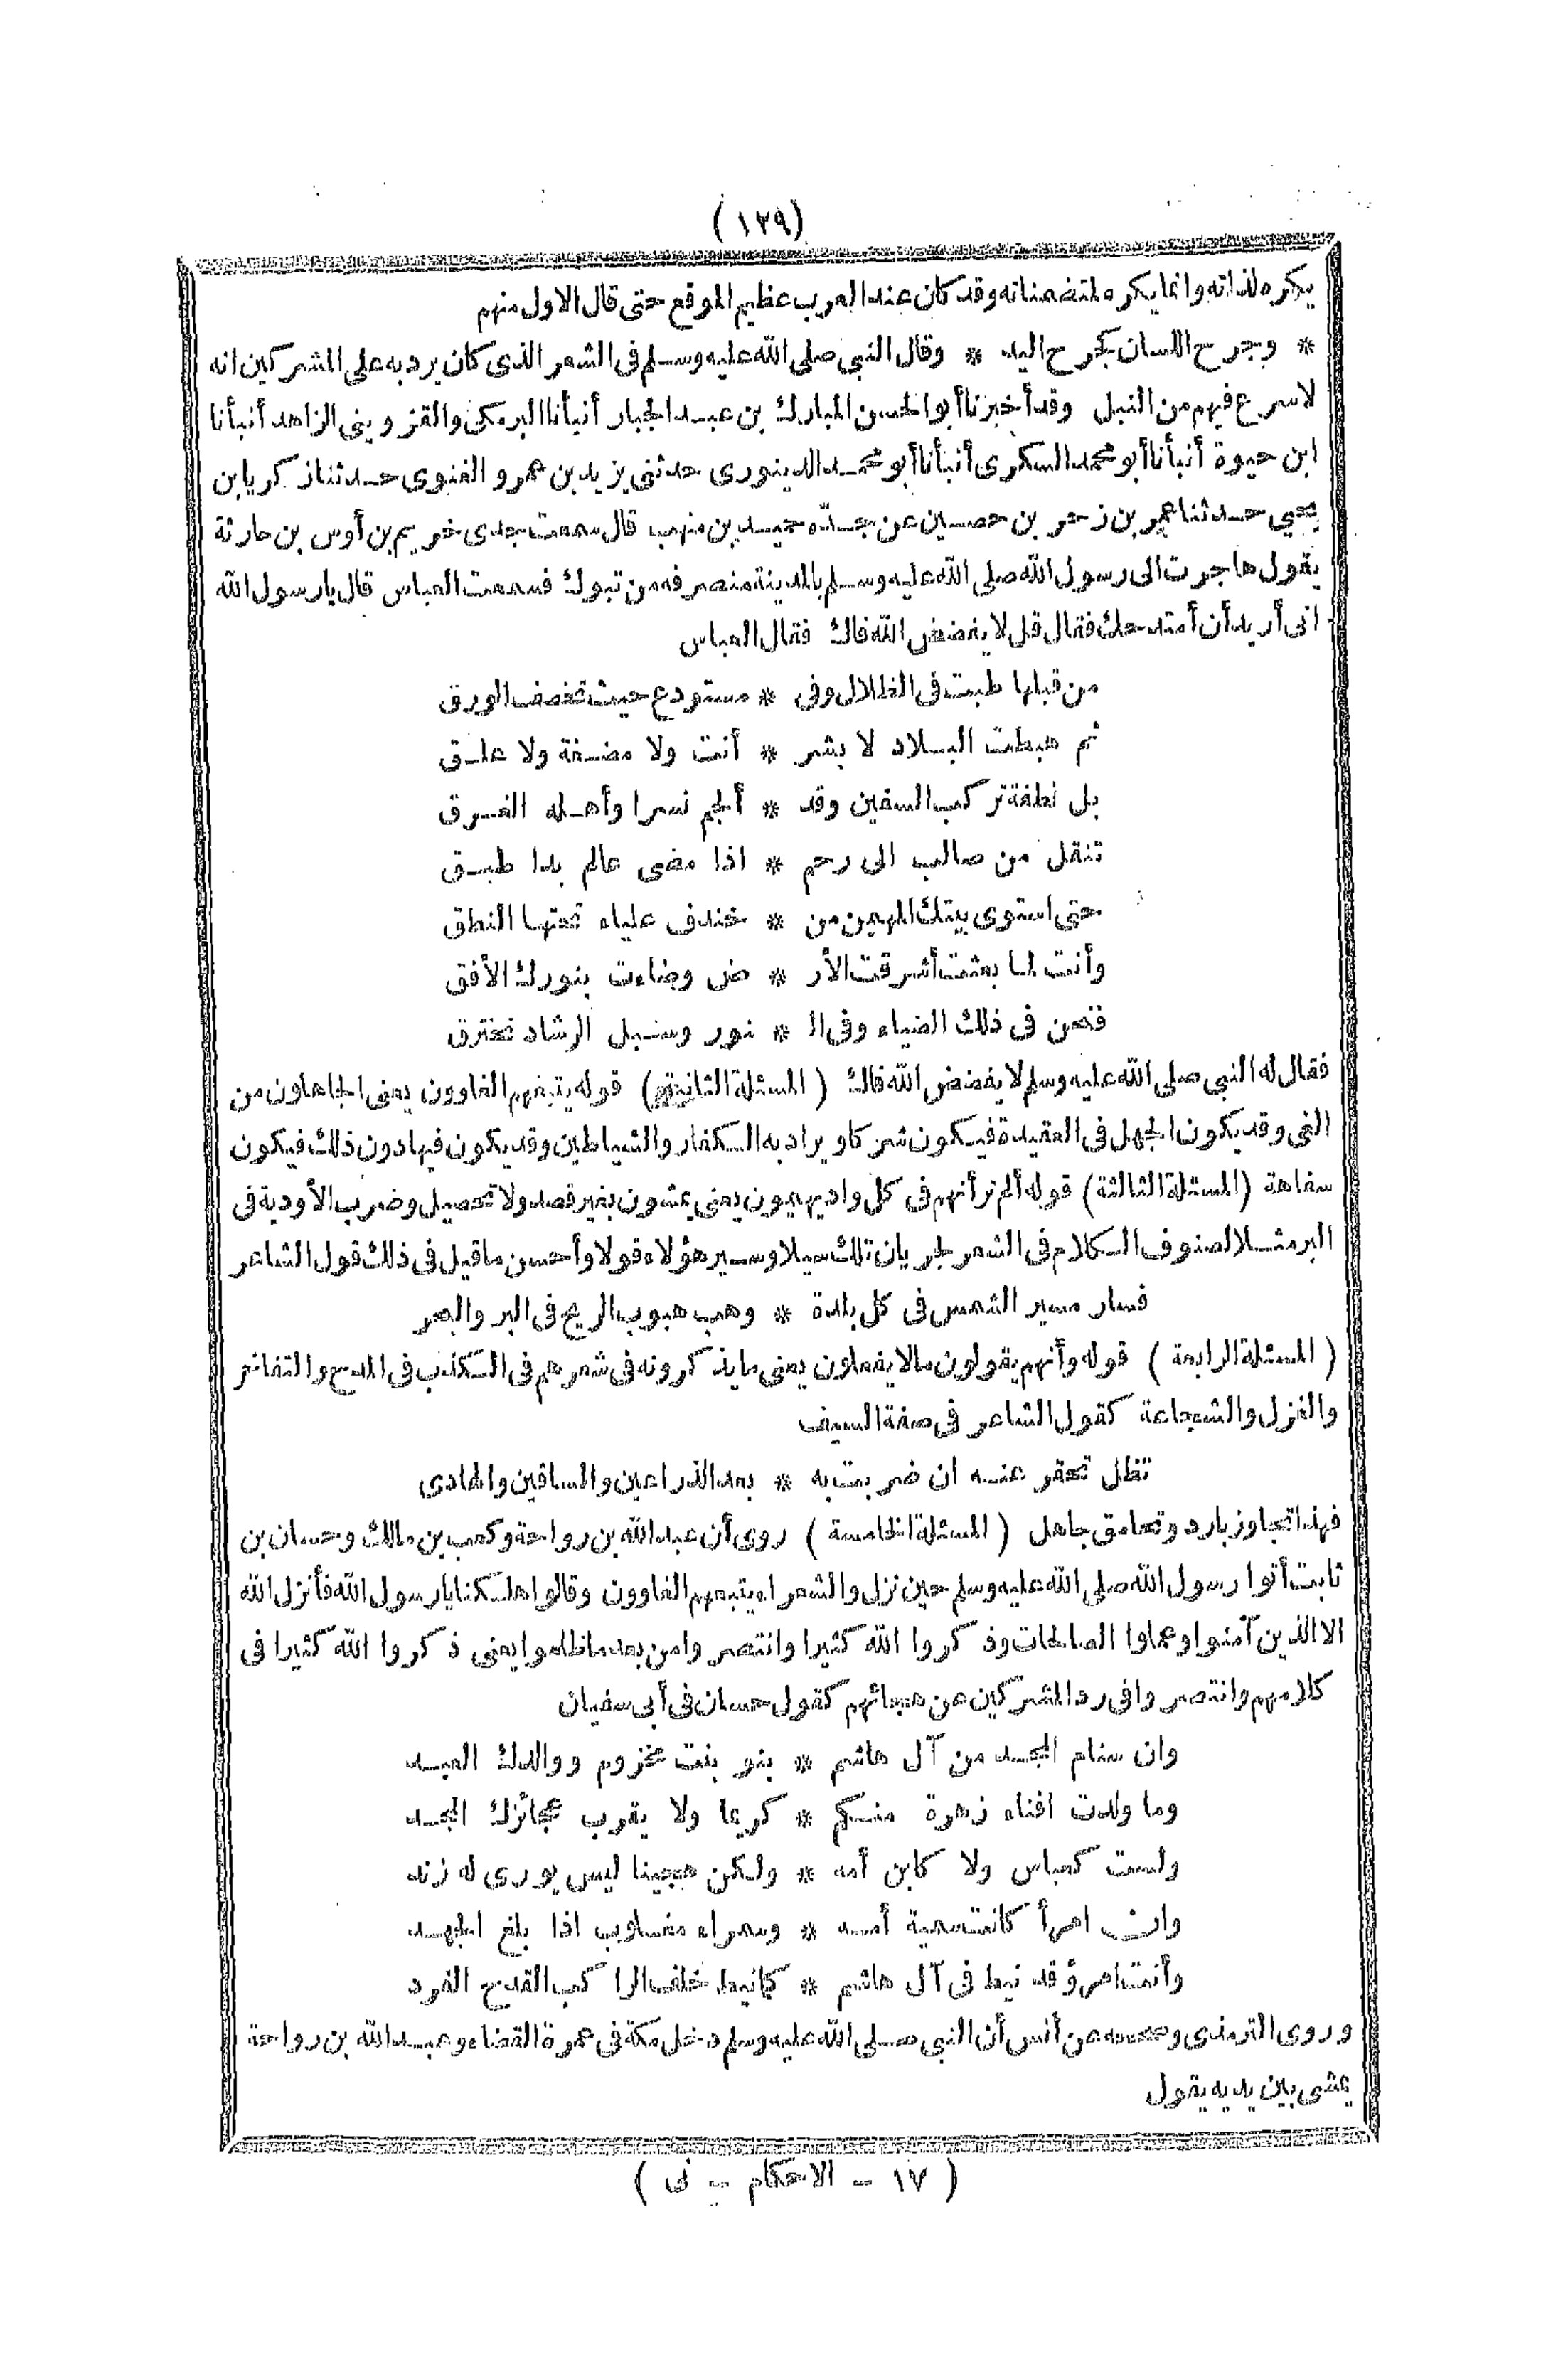 (١٢٩)
يكره لذاته وانما يكره لمتضمناته وقد كان عند العرب عظيم الموقع حتى قال الاول منهم
* وجرح اللسان كجرح اليد * وقال النبي صلى الله عليه وسلم في الشعر الذى كان يرد به على المشركين انه
لاسرع فيهم من النبل وقد أخبرنا أبو الحسن المبارك بن عبد الجبار أنبأنا البرمكى والقزوينى الزاهد أنبأنا
ابن حيوة أنبأنا أبو محمد السكرى أنبأنا أبو محمد الدينورى حدثنى يزيد بن عمرو الغنوى حدثنا زكريا بن
يحيي حدثنا عمر بن زحر بن حصين عن جدّه حميد بن منهب قال سمعت جدى خريم بن أوس بن حارثة
يقول هاجرت الى رسول الله صلى الله عليه وسلم بالمدينة منصرفه من تبوك فسمعت العباس قال يارسول الله
انى أريد أن أمتدحك فقال قل لا يفضض الله فاك فقال العباس
من قبلها طبت فى الظلال وفى * مستودع حيث تخصف الورق
ثم هبطت البلاد لا بشر * أنت ولا مضغة ولا علق
بل نطفة تركب السفين وقد * ألجم نسرا وأهله الغرق
تنقل من صالب الى رحم * اذا مضى عالم بدا طبق
حتى استوى بيتك المهيمن من * خندف علياء تحتها النطق
وأنت لما بعثت أشرقت الأر * ض وضاءت بنورك الأفق
فنحن فى ذلك الضياء وفى ال * نور وسبل الرشاد نخترق
فقال له النبي صلى الله عليه وسلم لا يفضض الله فاك (المسئلة الثانية) قوله يتبعهم الغاوون يعنى الجاهلون من
الغى وقد يكون الجهل فى العقيدة فيكون شركا ويراد به الكفار والشياطين وقد يكون فيها دون ذلك فيكون
سفاهة (المسئلة الثالثة) قوله ألم تر أنهم فى كل واد يهيمون يعنى يمشون بغير قصد ولا تحصيل وضرب الأودية فى
البر مثلا لصنوف الكلام فى الشعر لجريان تلك سيلا وسير هؤلاء قولا وأحسن ما قيل فى ذلك قول الشاعر
فسار مسير الشمس فى كل بلدة * وهب هبوب الريح فى البر والبحر
(المسئلة الرابعة) قوله وأنهم يقولون مالا يفعلون يعنى ما يذكرونه فى شعرهم فى الكذب فى المدح والتفاخر
والغزل والشجاعة كقول الشاعر فى صفة السيف
تظل تحفر عنه ان ضربت به * بعد الذراعين والساقين والهادى
فهذا تجاوز بارد وتحامق جاهل (المسئلة الخامسة) روى أن عبد الله بن رواحة وكعب بن مالك وحسان بن
ثابت أتوا رسول الله صلى الله عليه وسلم حين نزل والشعراء يتبعهم الغاوون وقالوا هلكنا يارسول الله فأنزل الله
الا الذين آمنوا وعملوا الصالحات وذكروا الله كثيرا وانتصروا من بعد ما ظلموا يعنى ذكروا الله كثيرا فى
كلامهم وانتصروا فى رد المشركين عن هجائهم كقول حسان فى أبى سفيان
وان سنام المجد من آل هاشم * بنو بنت مخزوم ووالدك العبد
وما ولدت افناء زهرة منكم * كريما ولا يقرب عجائزك المجد
ولست كعباس ولا كابن أمه * ولكن هجينا ليس يورى له زند
وان امرأ كانت سمية أمه * وسمراء مغلوب اذا بلغ الجهد
وأنت امرؤ قد نيط فى آل هاشم * كما نيط خلف الراكب القدح الفرد
وروى الترمذى وصححه عن أنس أن النبي صلى الله عليه وسلم دخل مكة فى عمرة القضاء وعبد الله بن رواحة
يمشى بين يديه يقول
(١٧ - الاحكام - نى)